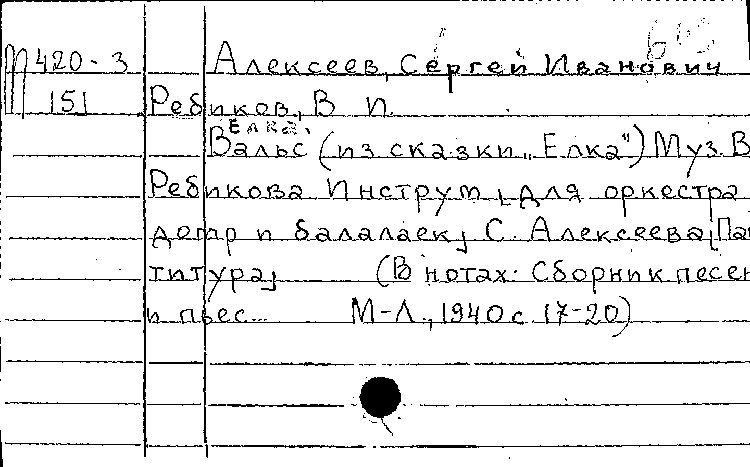 П420-3 Алексеев, Сергей Иванович
151 Ребиков, В И.
Елка.
Вальс (из сказки „Елка“) Муз. В
Ребикова Инструм[.] для оркестра
домр и балалаек] С. Алексеева [Пар
титура] (В нотах: Сборник песен
и пьес... М-Л., 1940 с. 17-20)